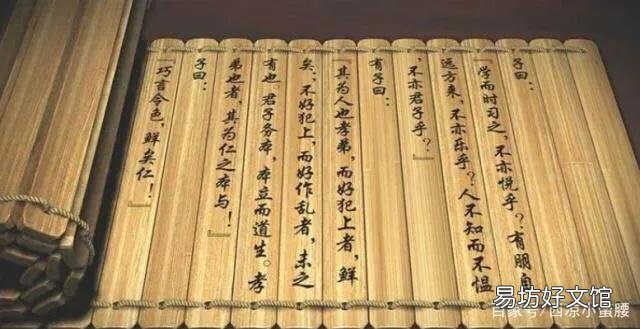 子曰：
『学而时习之，不亦悦乎？有朋自
远方来，不亦乐乎？人不知而不愠
，不亦君子乎？』
有子曰：
『其为人也孝弟，而好犯上者，鲜
矣；不好犯上，而好作乱者，未之
有也。君子务本，本立而道生。孝
弟也者，其为仁之本与！』
子曰：
『巧言令色，鲜矣仁！』
易坊好文馆
百家号/西凉小蛮腰